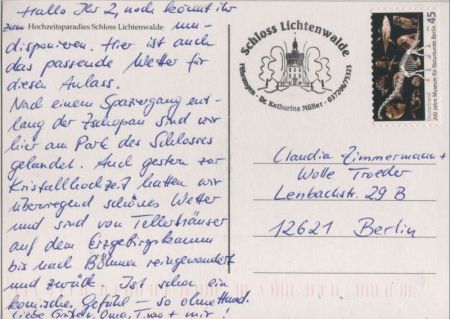 Hallo Ihr 2, noch könnt ihr
zum Hochzeitsparadies Schloss Lichtenwalde um-
disponieren. Hier ist auch
das passende Wetter für
diesen Anlass.
Nach einem Spaziergang ent-
lang der Zschopau sind wir
hier am Park des Schlosses
gelandet. Auch gestern zur
Kristallhochzeit hatten wir
überwiegend schönes Wetter
und sind von Tellerhäuser
auf dem Erzgebirgskamm
bis nach Böhmen reingewandert
und zurück. Ist schon ein
komisches Gefühl – so ohne Hund.
Liebe Grüße, Oma, + mir!
Schloss Lichtenwalde
Dr. Katharina Müller
45
Deutschland
200 Jahre Museum für Naturkunde Berlin
Claudia Zimmermann +
Wolle Troeder
Lenbachstr. 29 B
12621 Berlin